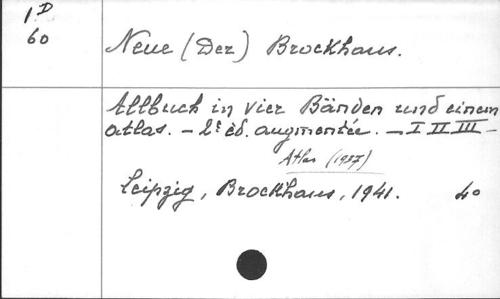 1D
60
Neue (Der) Brockhaus.
Allbuch in vier Bänden und einem
atlas. - 2e éd. augmentée. - I II III -
Atlas (1937)
Leipzig, Brockhaus, 1941. 40